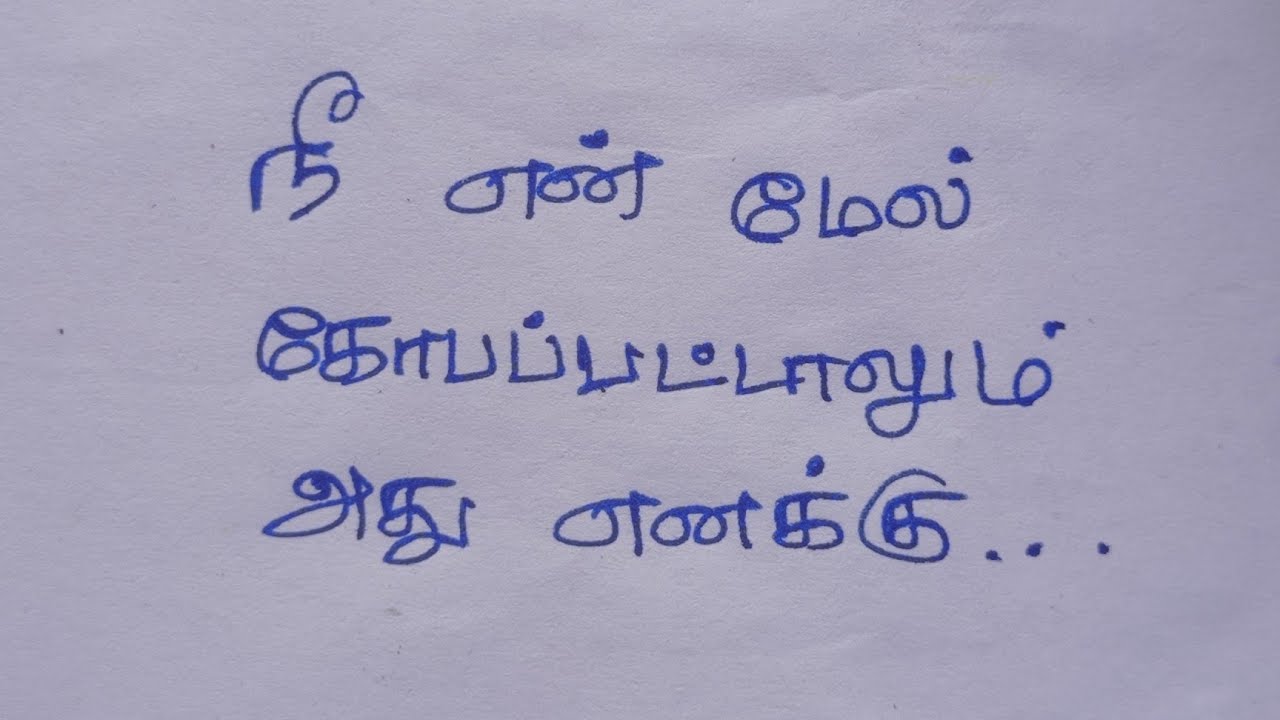 நீ என் மேல்
கோபப்பட்டாலும்
அது எனக்கு...